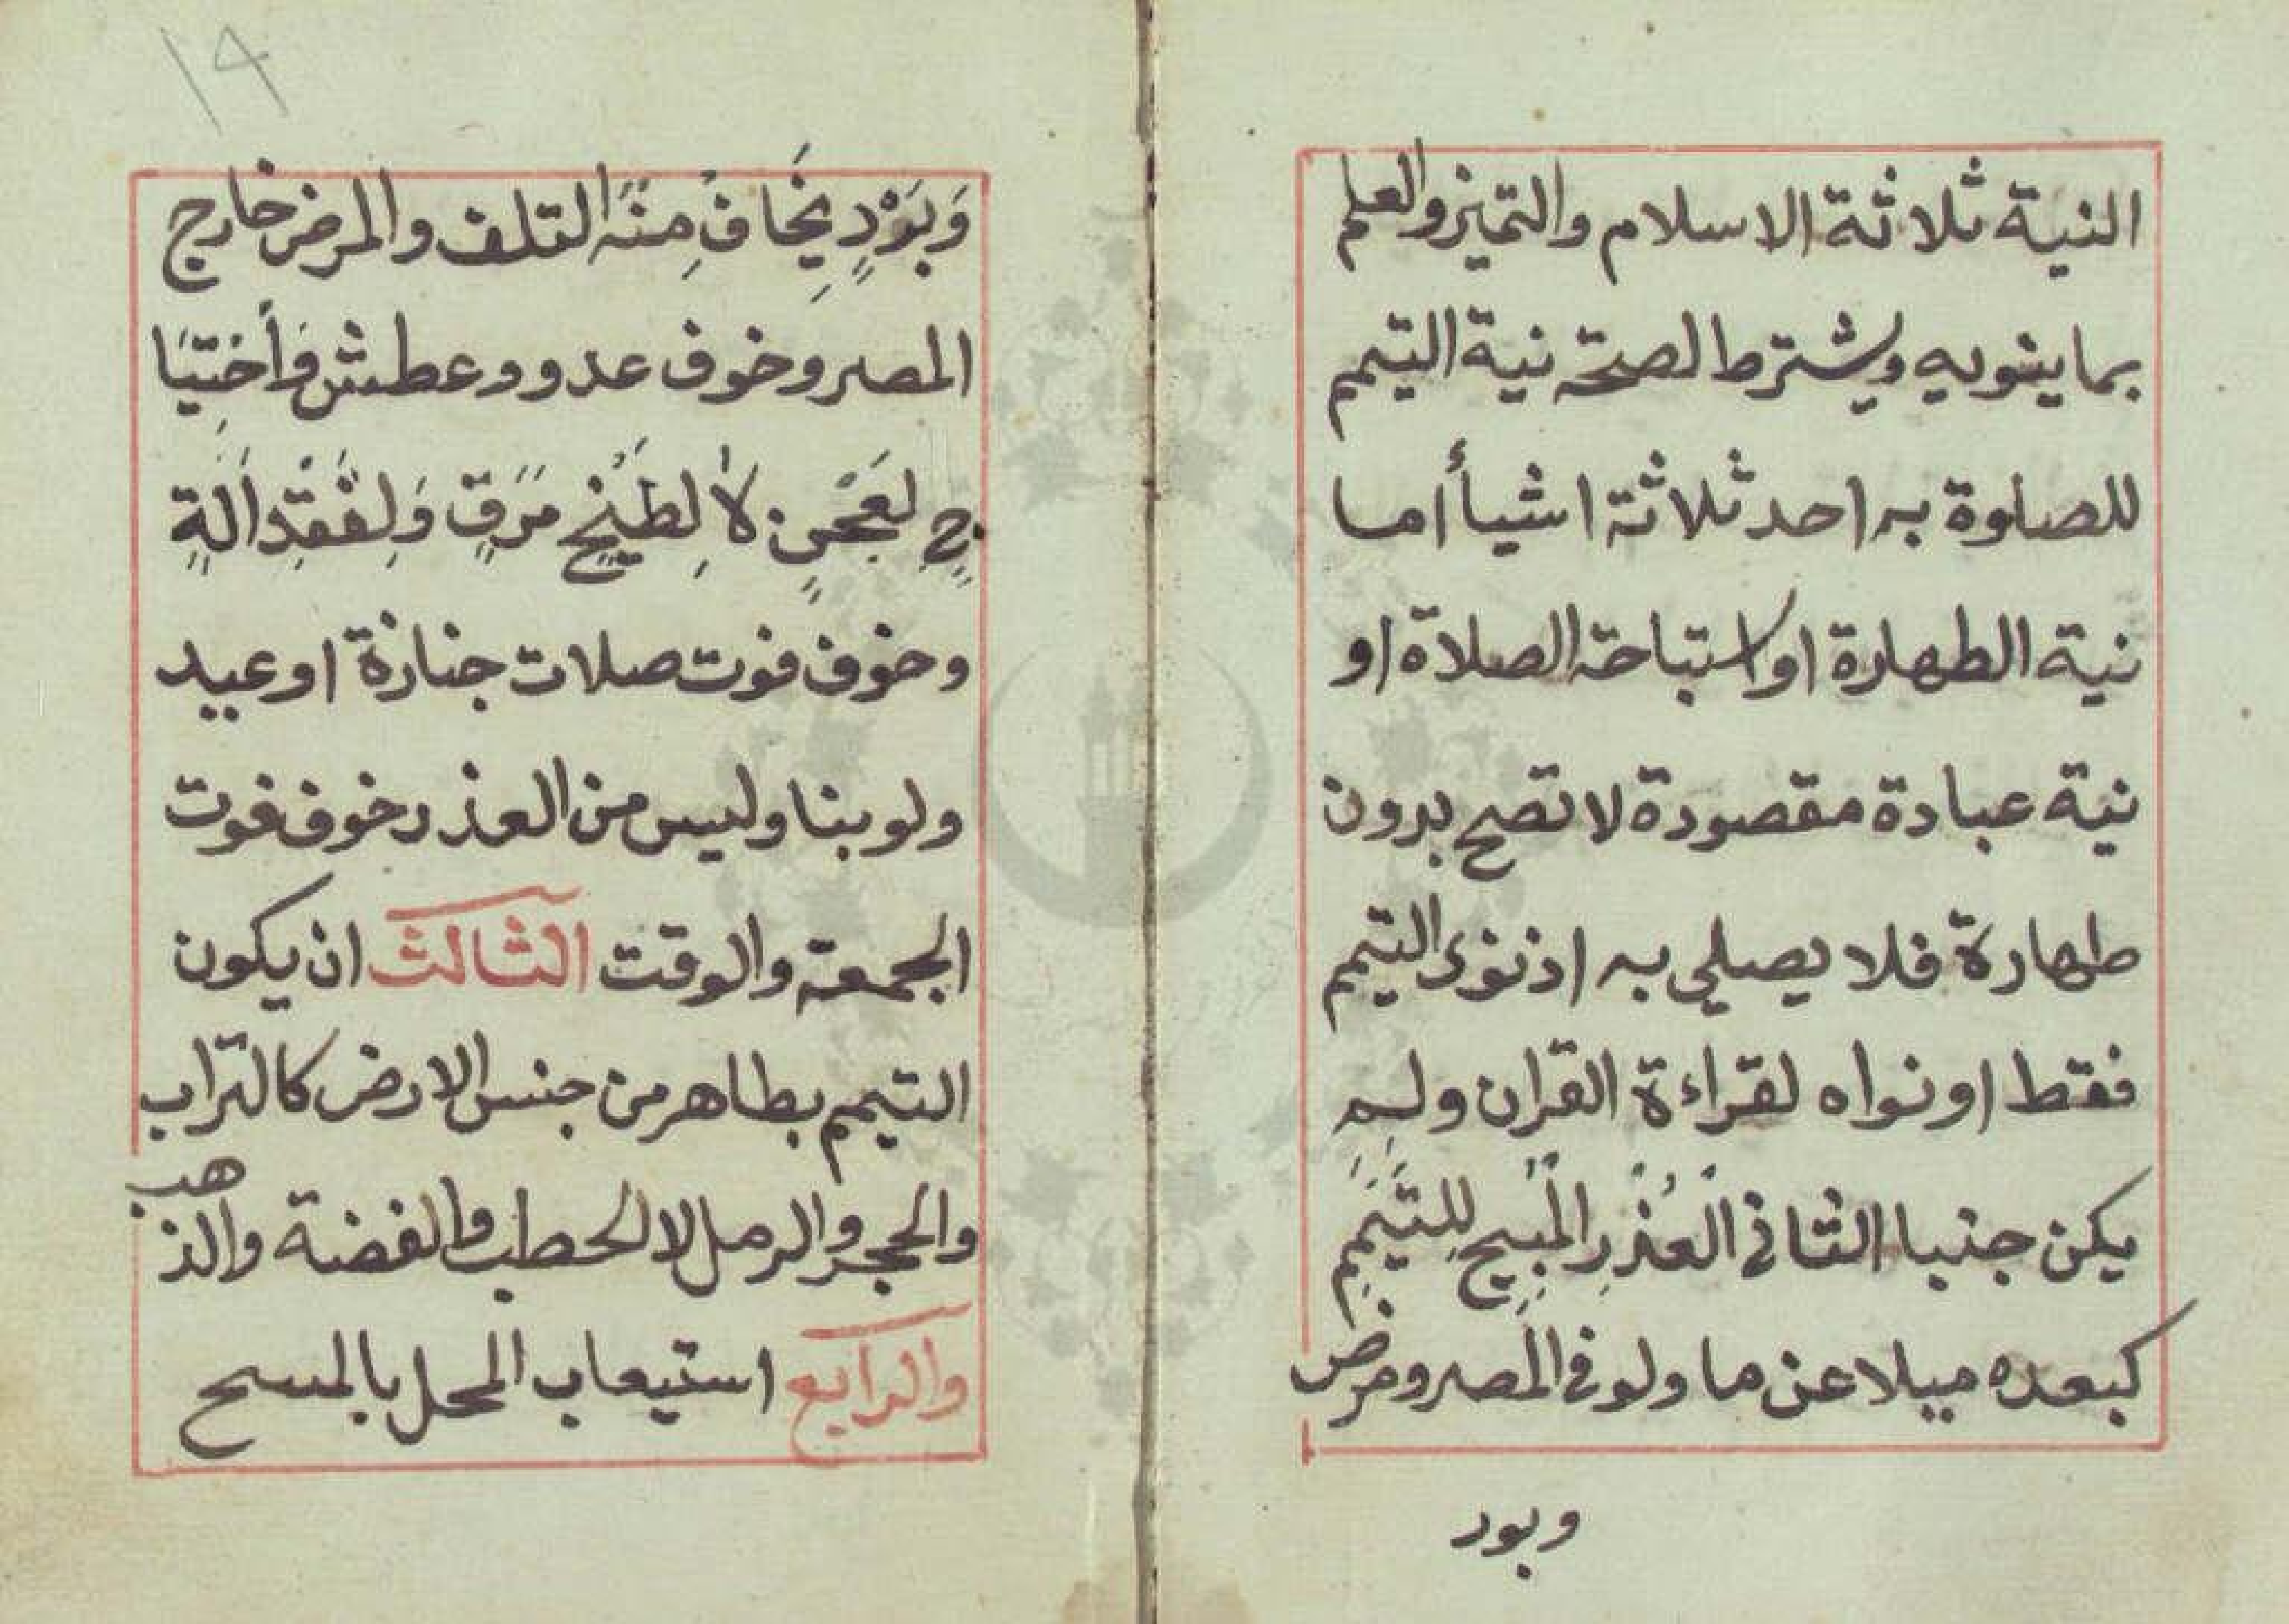 النية ثلاثة الاسلام والتميز والعلم
بما ينويه ويشترط لصحة نية التيمم
للصلوة به احد ثلاثة اشيأ اما
نية الطهارة او استباحة الصلاة او
نية عبادة مقصودة لا تصح بدون
طهارة فلا يصلي به اذ نوى التيمم
فقط او نواه لقراءة القران ولم
يكن جنبا الثاني الْعُذْرِ الْمُبِيحِ لِلتَّيَمُّمِ
كبعده ميلا عن ما ولو في المصر ومرض
وبود
١٤
وَبَوْدٍ يَخَافُ مِنْهُ التلف والمرض خارج
المصر وخوف عدو وعطش وَاَحْتِيَا
جٍ لعَجْنٍ لاَ لِطَبْخِ مَرَقٍ وَلِفَقْدِ اَلَةٍ
وخوف فوت صلات جنازة او عيد
ولو بنا وليس من العذر خوف فوت
الجمعة والوقت الثالث ان يكون
التيمم بطاهر من جنس الارض كالتراب
والحجر والرمل لا الحطب والفضة والذهب
والرابع استيعاب المحل بالمسح